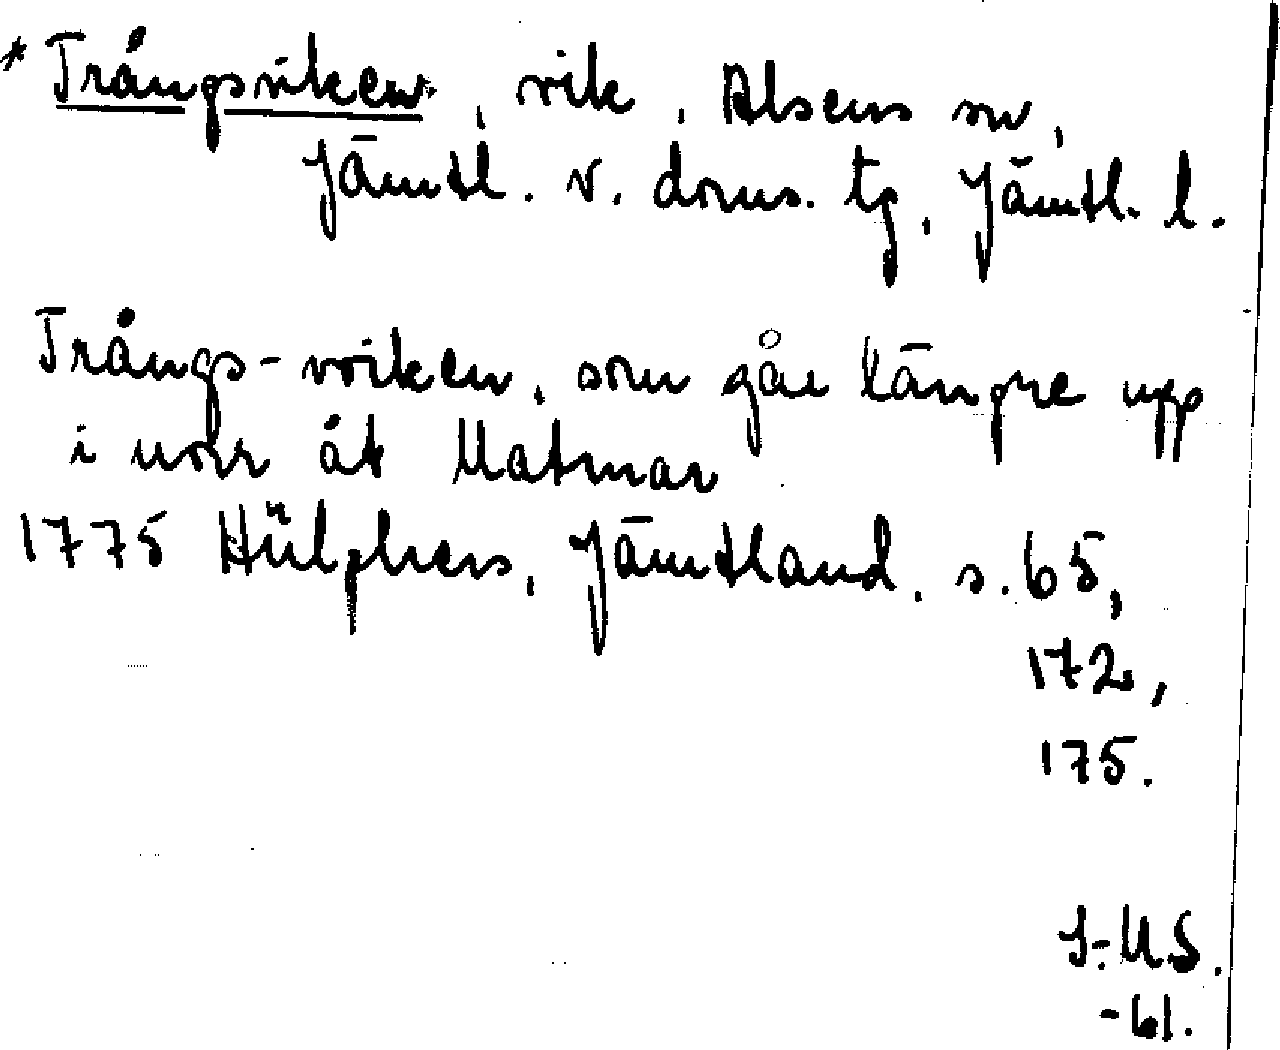 * Trångsviken, vik, Alsens sn,
Jämtl. v. doms. tg, Jämtl. l.
Trångs-wiken, som går längre upp
i norr åt Matmar
1775 Hülphers, Jämtland, s. 65,
172,
175.
I-MS.
-61.